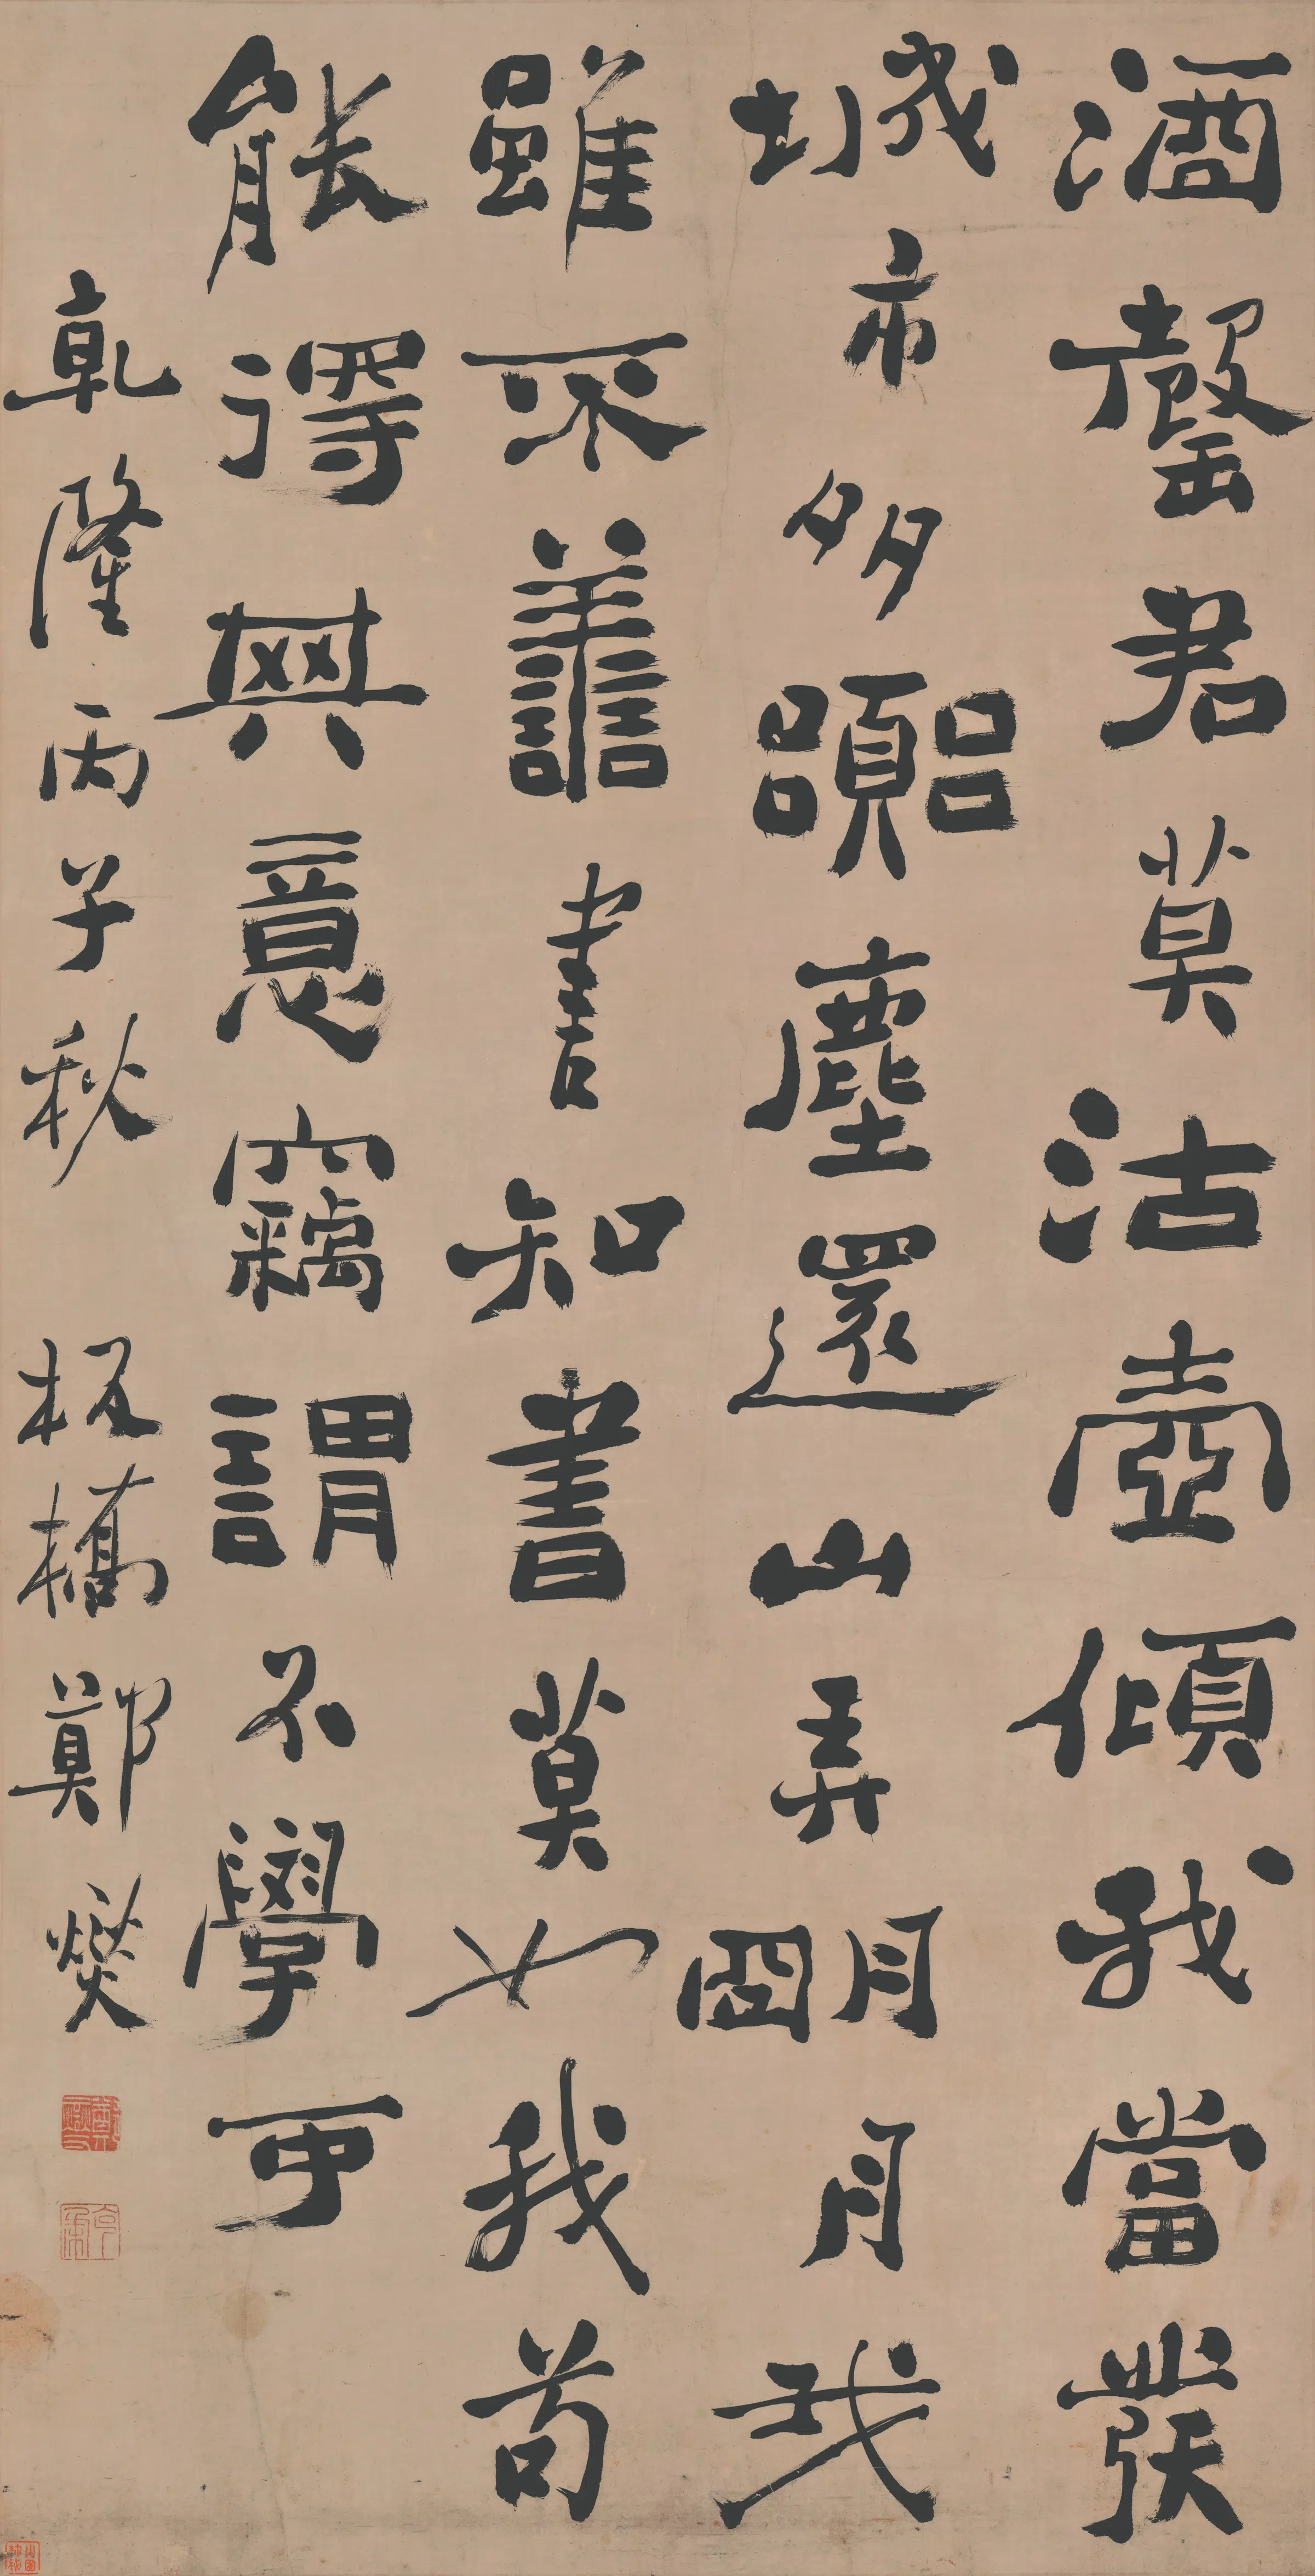 酒罄君莫沽壺傾我當發
城市多囂塵還山弄朙月我
雖不善書知書莫如我苟
能得其意竊謂不學可
乾隆丙子秋 板橋鄭燮
克柔